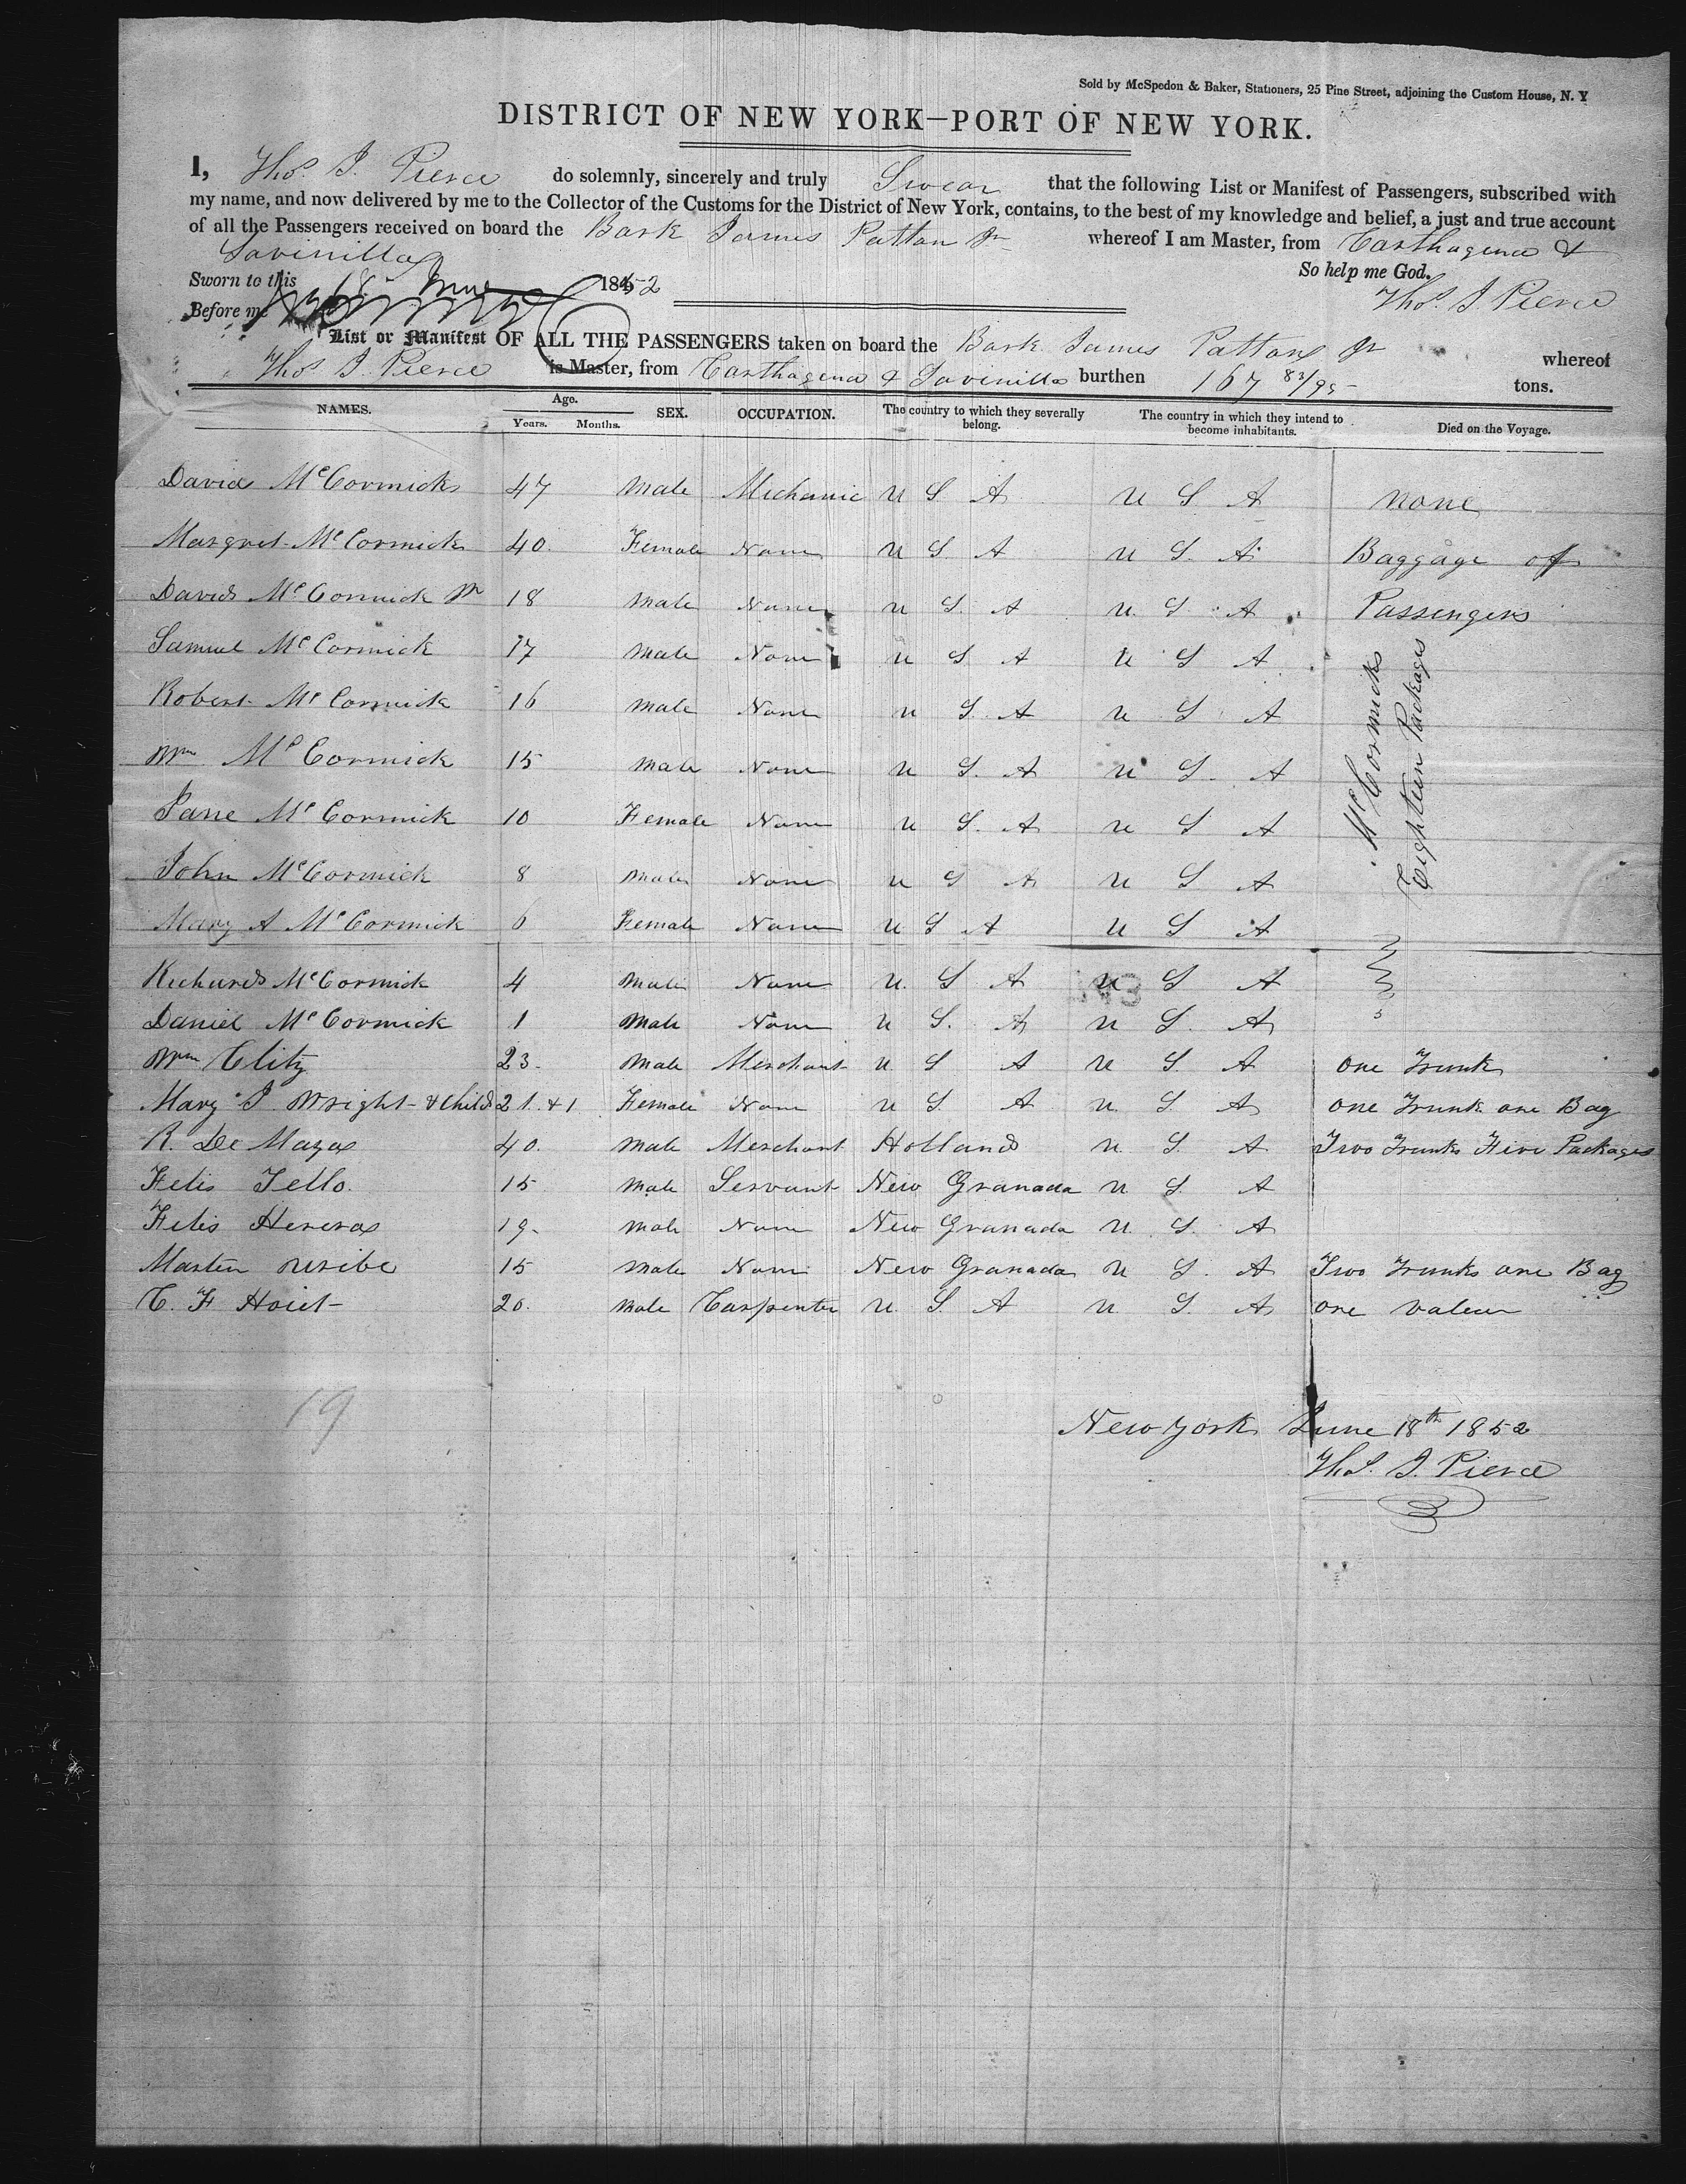 Sold by McSpedon & Baker, Stationers, 25 Pine Street, adjoining the Custom House, N. Y
DISTRICT OF NEW YORK—PORT OF NEW YORK.
I, Thos. J. Pierce do solemnly, sincerely and truly Swear that the following List or Manifest of Passengers, subscribed with
my name, and now delivered by me to the Collector of the Customs for the District of New York, contains, to the best of my knowledge and belief, a just and true account
of all the Passengers received on board the Bark James Patton Jr whereof I am Master, from Carthagena &
Savinilla So help me God.
Sworn to this 18 June 1852 Thos. J. Pierce
Before me
List or Manifest OF ALL THE PASSENGERS taken on board the Bark James Patton Jr whereof
Thos. J. Pierce is Master, from Carthagena & Savinilla burthen 167 83/95 tons.
NAMES. Age. Years. Months. SEX. OCCUPATION. The country to which they severally belong. The country in which they intend to become inhabitants. Died on the Voyage.
David McCormick 47 Male Mechanic U S A U S A none
Margret McCormick 40. Female None U S A U S. A Baggage of
David McCormick Jr 18 Male None U S. A U. S A Passengers
Samuel McCormick 17 Male None U S A U S A
Robert McCormick 16 Male None U S. A U S A
Wm McCormick 15 Male None U S. A U S. A
Jane McCormick 10 Female None U S. A U S A
John McCormick 8 Male None U S A U S A
Mary A McCormick 6 Female None U S A U S A
McCormicks
Eighteen Packages
Richard McCormick 4 Male None U. S A U S A
Daniel McCormick 1 Male None U S. A U S. A
Wm Clitz 23. Male Merchant U S A U S. A One Trunk
Mary J. Wright & Child 21. & 1 Female None U S. A U. S. A One Trunk one Bag
R. De Maza 40. Male Merchant Holland U. S. A Two Trunks Five Packages
Felis Tello. 15 Male Servant New Granada U. S. A
Felis Herera 19. Male None New Granada U. S. A
Marten Uribe 15 Male None New Granada U S. A Two Trunks one Bag
C. F Hoiet 20. Male Carpenter U. S. A U. S. A One
19
New York June 18th 1852
Thos. J. Pierce